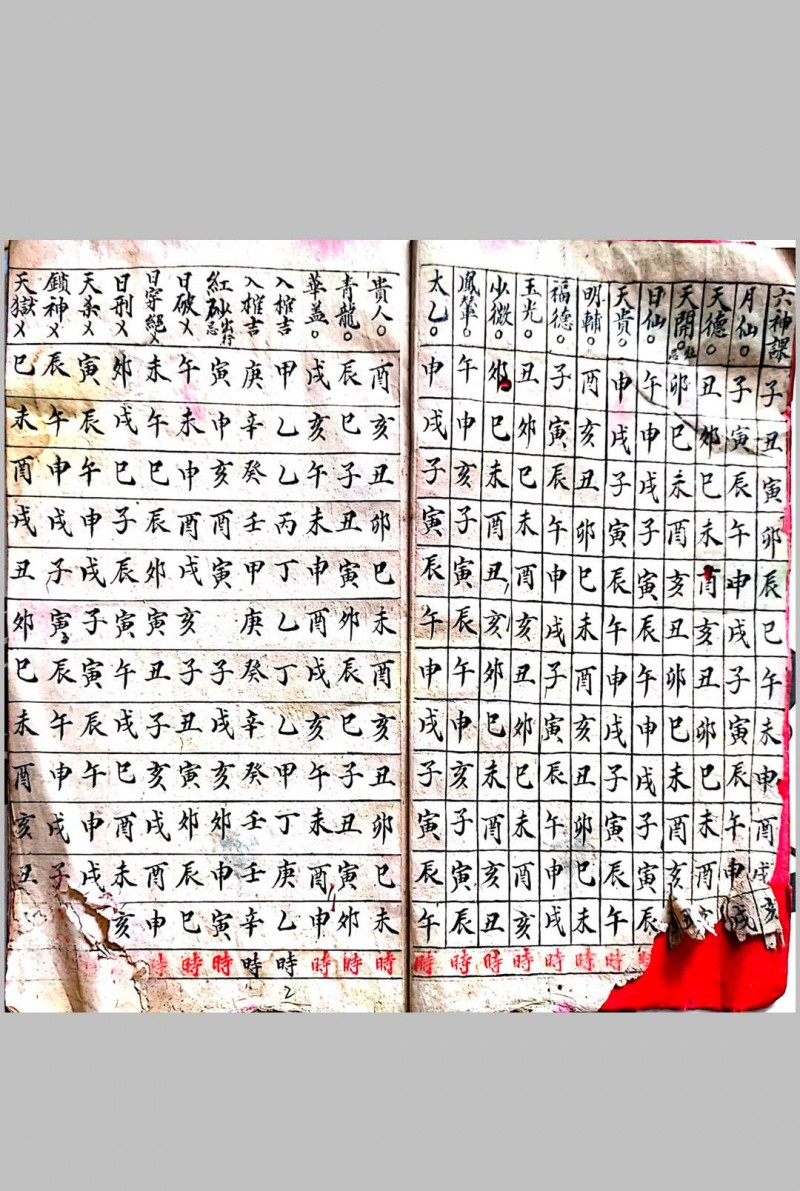 六神課子丑寅卯辰巳午未申酉戌亥
月仙○子寅辰午申戌子寅辰午申戌
天德○丑卯巳未酉亥丑卯巳未酉
天開○卯巳未酉亥丑卯巳未酉亥
日仙○午申戌子寅辰午申戌子寅辰
天貴○申戌子寅辰午申戌子寅辰午時
明輔○酉亥丑卯巳未酉亥丑卯巳未時
福德○子寅辰午申戌子寅辰午申戌時
玉光○丑卯巳未酉亥丑卯巳未酉亥時
少微○卯巳未酉丑亥卯巳未酉亥丑時
鳳輦○午申亥子寅辰午申亥子寅辰時
太乙○申戌子寅辰午申戌子寅辰午時
貴人○酉亥丑卯巳未酉亥丑卯巳未時
青龍○辰巳子丑寅卯辰巳子丑寅卯時
華蓋○戌亥午未申酉戌亥午未酉申時
入棺吉甲乙乙丙丁乙丁乙甲丁庚乙時
入棺吉庚辛癸壬甲庚癸辛癸壬壬辛時
紅砂出行忌寅申亥酉寅子戌亥卯申寅時
日破㐅午未申酉戌亥子丑寅卯辰巳時
日字絕㐅未午巳辰卯寅丑子亥戌酉申時
日刑㐅卯戌巳子辰寅午戌巳酉未亥
天杀㐅寅辰午申戌子寅辰午申戌
鎖神㐅辰午申戌子寅辰午申戌子
天獄㐅巳未酉戌丑卯巳未酉亥丑
2